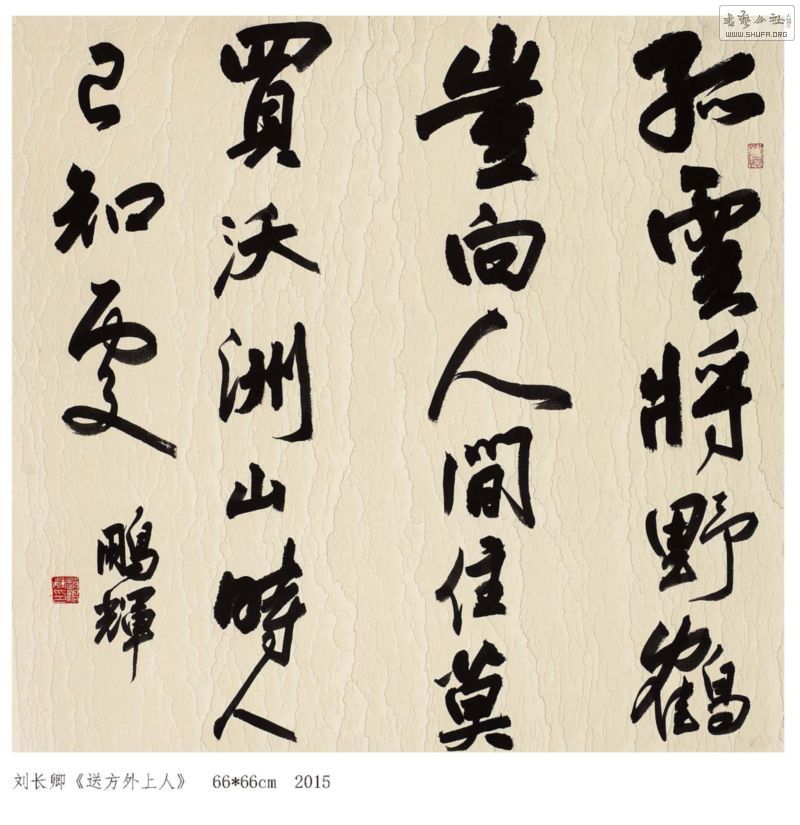 孤雲將野鶴
豈向人間住莫
買沃洲山時人
已知處
鵬輝
刘长卿《送方外上人》 66*66cm 2015
书艺公社
WWW.SHUFA.ORG